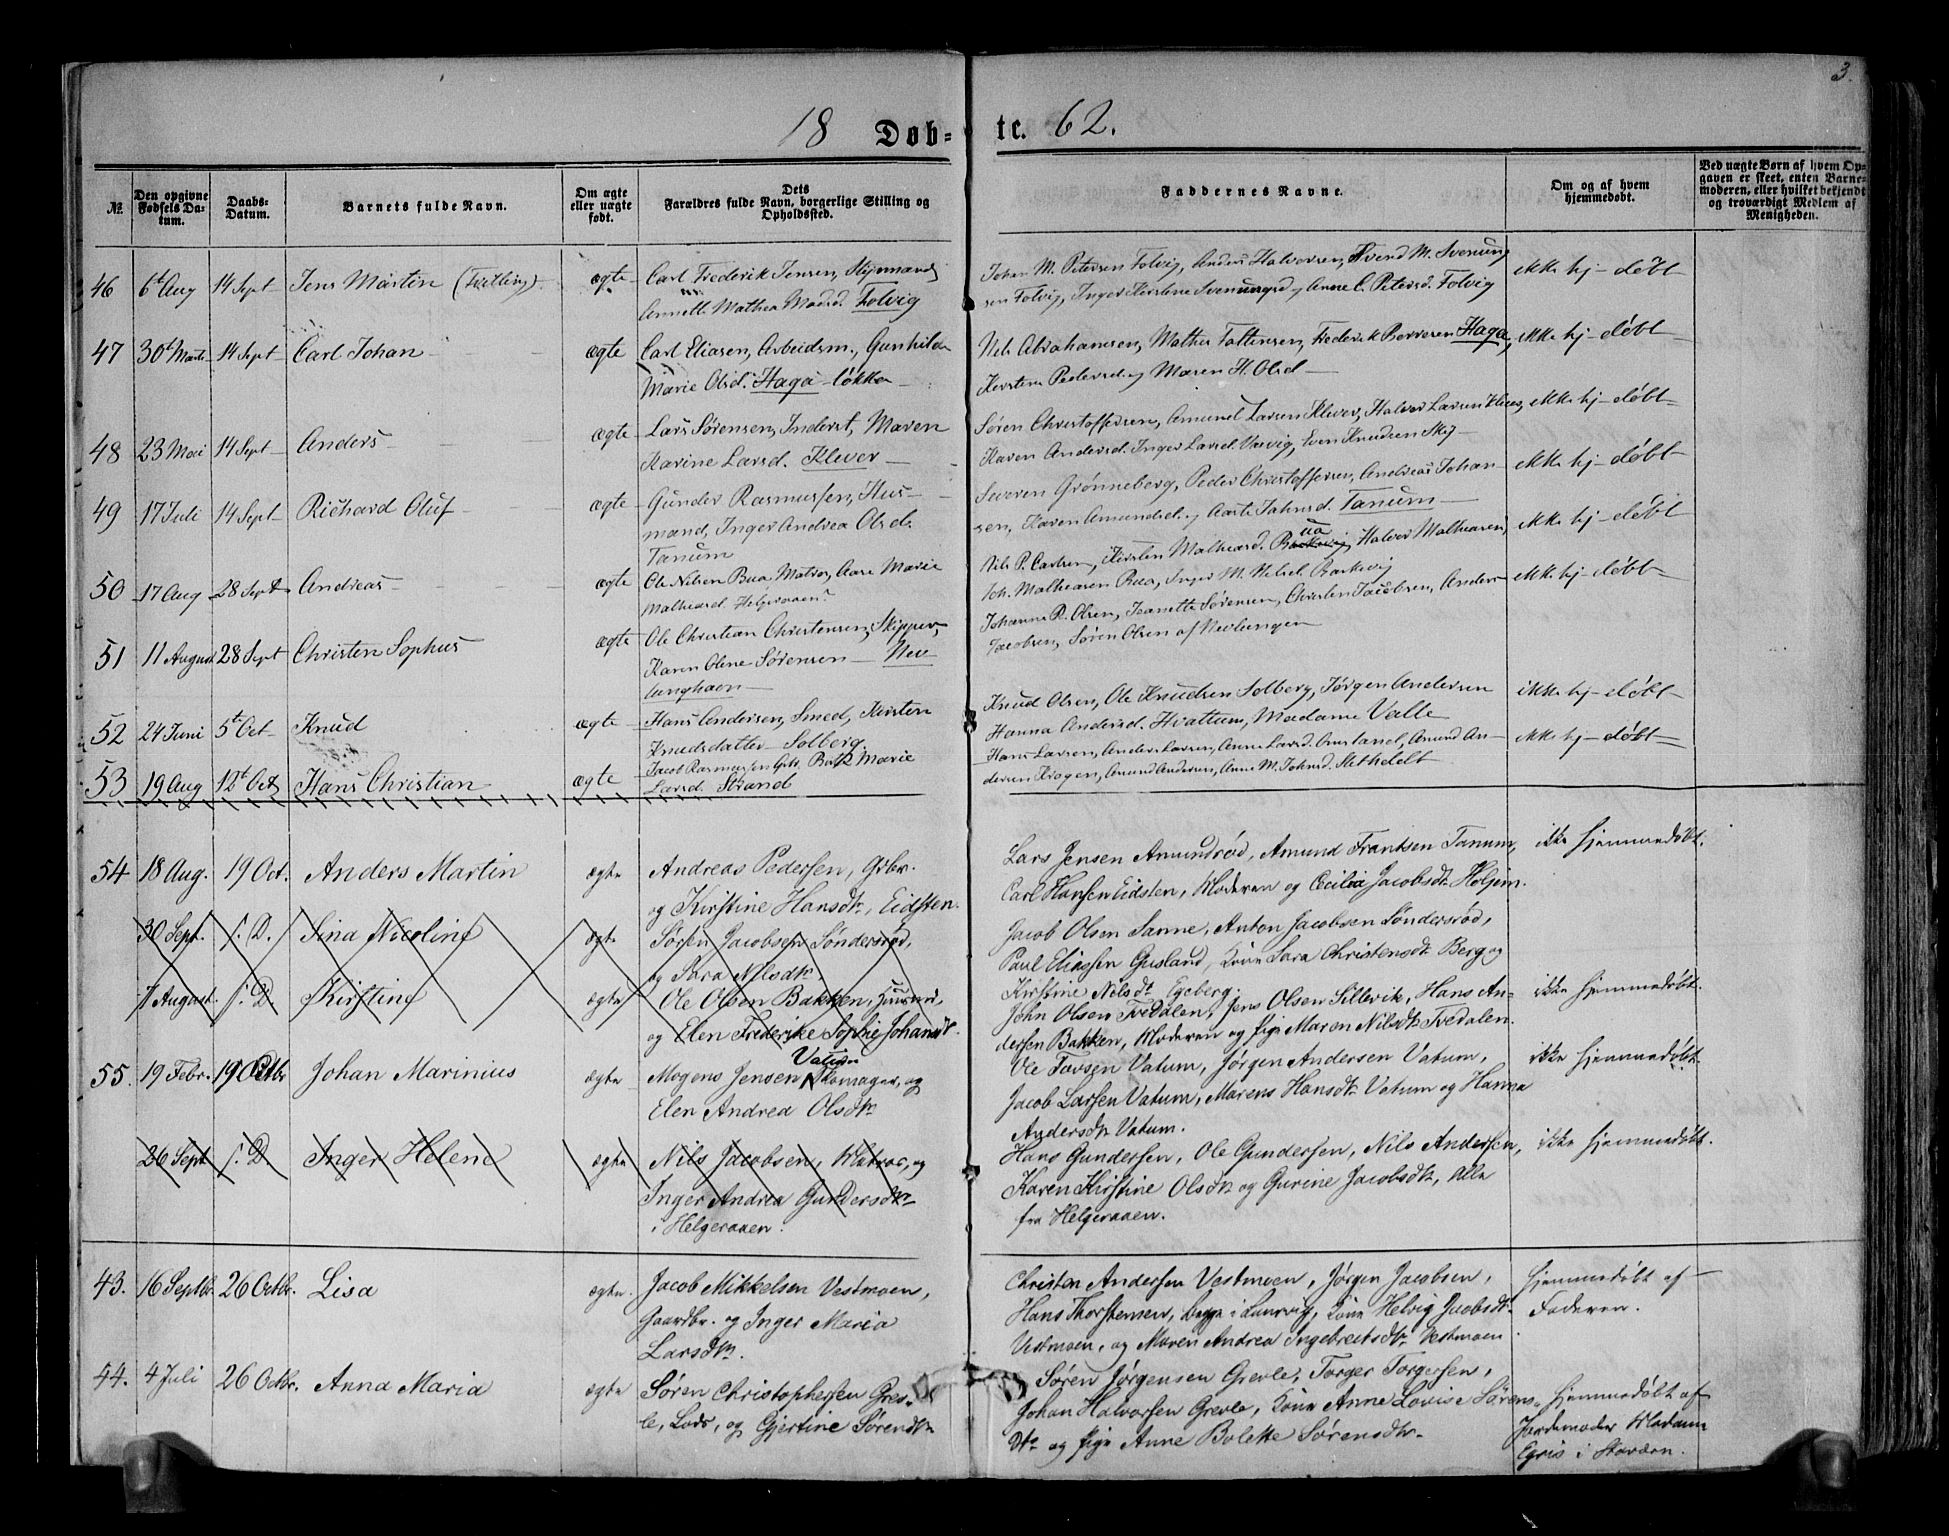 3.
18 Døb= te. 62.
№
Den opgivne Fødsels Datum.
Daabs-Datum.
Barnets fulde Navn.
Om ægte eller uægte født.
Dets Farældres fulde Navn, borgerlige Stilling og Opholdsted.
Faddernes Navne.
Om og af hvem hjemmedøbt.
Ved uægte Børn af hvem Opgaven er skeet, enten Barnemoderen, eller hvilket bekjendt og troværdigt Medlem af Menigheden.
46 6t Aug 14 Sept Jens Martin (Tvilling) ægte Carl Frederik Jensen, Styrmand,
Annette Mathea Madsd. Folvig
Johan M. Petersen Folvig, Anders Halvorsen, Sverd M. Svenung
sen Folvig, Inger Kirstine Svenungsd og Anne C. Petersd. Folvig
ikke hj- døbt
47 30t Marts 14 Sept Carl Johan ægte Carl Eliasen, Arbeidsm., Gunhilde
Marie Olsd. Haga-løkka
Nils Abrahamsen, Mathis Tallensen, Frederik Borresen Haga,
Kirstine Pedersd. og Maren H. Olsd
ikke hj- døbt
48 23 Mai 14 Sept Anders ægte Lars Sørensen, Inderst, Maren
Karine Larsd. Klever
Søren Christoffersen, Amund Larsen Klever, Halvor Larsen Klever,
Karen Andersd. Inger Larsd. Varvig, Even Knudsen Skij
ikke hj- døbt
49 17 Juli 14 Sept Richard Oluf ægte Gunder Rasmussen, Hus-
mand, Inger Andrea Olsd.
Tanum
Severen Grønneberg, Peder Christoffersen, Andreas Johan-
sen, Karen Amundsd. og Aarte Jahnsd. Tanum
ikke hj- døbt
50 17 Aug 28 Sept Andreas ægte Ole Nilsen Bua Matros, Aase Marie
Mathiasd. Helgeraaen
Nils P. Carlsen, Kirsten Mathiasd. Bua, Halvor Mathiasen,
Joh. Mathiasen Bua, Inger M. Nilsd. Barkevig
ikke hj- døbt
51 11 August 28 Sept Christen Sophus ægte Ole Christian Christensen, Skipper,
Karen Oline Sørensen Nev-
lunghavn
Johanne R. Olsen, Jeanette Sørensen, Christen Jacobsen, Anders
Jacobsen, Søren Olsen af Nevlungen
ikke hj- døbt
52 24 Juni 5t Oct Knud ægte Hans Andersen, Smed, Kirsten
Knudsdatter Solberg.
Knud Olsen, Ole Knudsen Solberg, Jørgen Andersen
Hanna Andersd. Hvattum, Madame Valle
ikke hj- døbt
53 19 Aug 12t Oct Hans Christian ægte Jacob Rasmussen Marie
Larsd. Strand
Hans Larsen, Anders Larsen, Anne Larsd. Omsland, Amund An-
dersen Krogen, Amund Andersen, Anne M. Johnsd.
ikke hj- døbt
54 18 Aug. 19 Oct. Anders Martin ægte Andreas Pedersen, Grbr.
og Kirstine Hansdtr, Eidsten.
Lars Jensen Amundrød, Amund Frantsen Tanum,
Carl Hansen Eidsten, Moderen og Cecilia Jacobsdtr. Holjem.
ikke hjemmedøbt.
30 Sept. s. D. Sina Nicoline ægte Søren Jacobsen Søndersrød,
og Sara Nilsdtr.
Jacob Olsen Sanne, Anton Jacobsen Søndersrød,
Paul Eliassen Gusland, Kone Sara Christensdtr. Berg og
Kirstine Nilsdtr. Egeberg.
7 August. s. D Kirstine ægte Ole Olsen Bakken, Huusmd,
og Elen Frederike Sophie Johansdtr.
John Olsen Tvedalen, Jens Olsen Sillevik, Hans An-
dersen Bakken, Moderen og Pige Maren Nilsdtr. Tvedalen.
ikke hjemmedøbt.
55. 19 Febr. 19 Octbr Johan Marinius ægte Mogens Jensen Vatum Skomager, og
Elen Andrea Olsdtr
Ole Tovsen Vatum, Jørgen Andersen Vatum,
Jacob Larsen Vatum, Marens Hansdtr. Vatum og Hanna
Andersdtr Vatum.
ikke hjemmedøbt.
26 Sept s. D. Inger Helene ægte Nils Jacobsen, Matros, og
Inger Andrea Gundersdtr
i Helgeraaen.
Hans Gundersen, Ole Gundersen, Nils Andersen,
Karen Kirstine Olsdtr og Gurine Jacobsdtr, Alle
fra Helgeraaen.
ikke hjemmedøbt.
43. 16 Septbr. 26 Octbr. Lisa ægte. Jacob Mikkelsen Vestmoen,
Gaardbr. og Inger Maria
Larsdtr.
Christen Andersen Vestmoen, Jørgen Jacobsen,
Hans Thorstensen, begge i Laurvig, Kone Helvig Jacobsdtr.
Vestmoen, og Maren Andrea Ingebretsdtr. Vestmoen.
Hjemmedøbt af
Faderen.
44. 4 Juli 26 Octbr. Anna Maria ægte Søren Christophersen Grev-
le, Lods, og Gjertine Sørensdtr
Søren Jørgensen Grevle, Torger Torgersen,
Johan Halvorsen Grevle, Kone Anne Lovise Sørens-
dtr og Pige Anne Bolette Sørensdtr.
Hjemmedøbt af
Jordemoder Madam
Egris i Stavern.